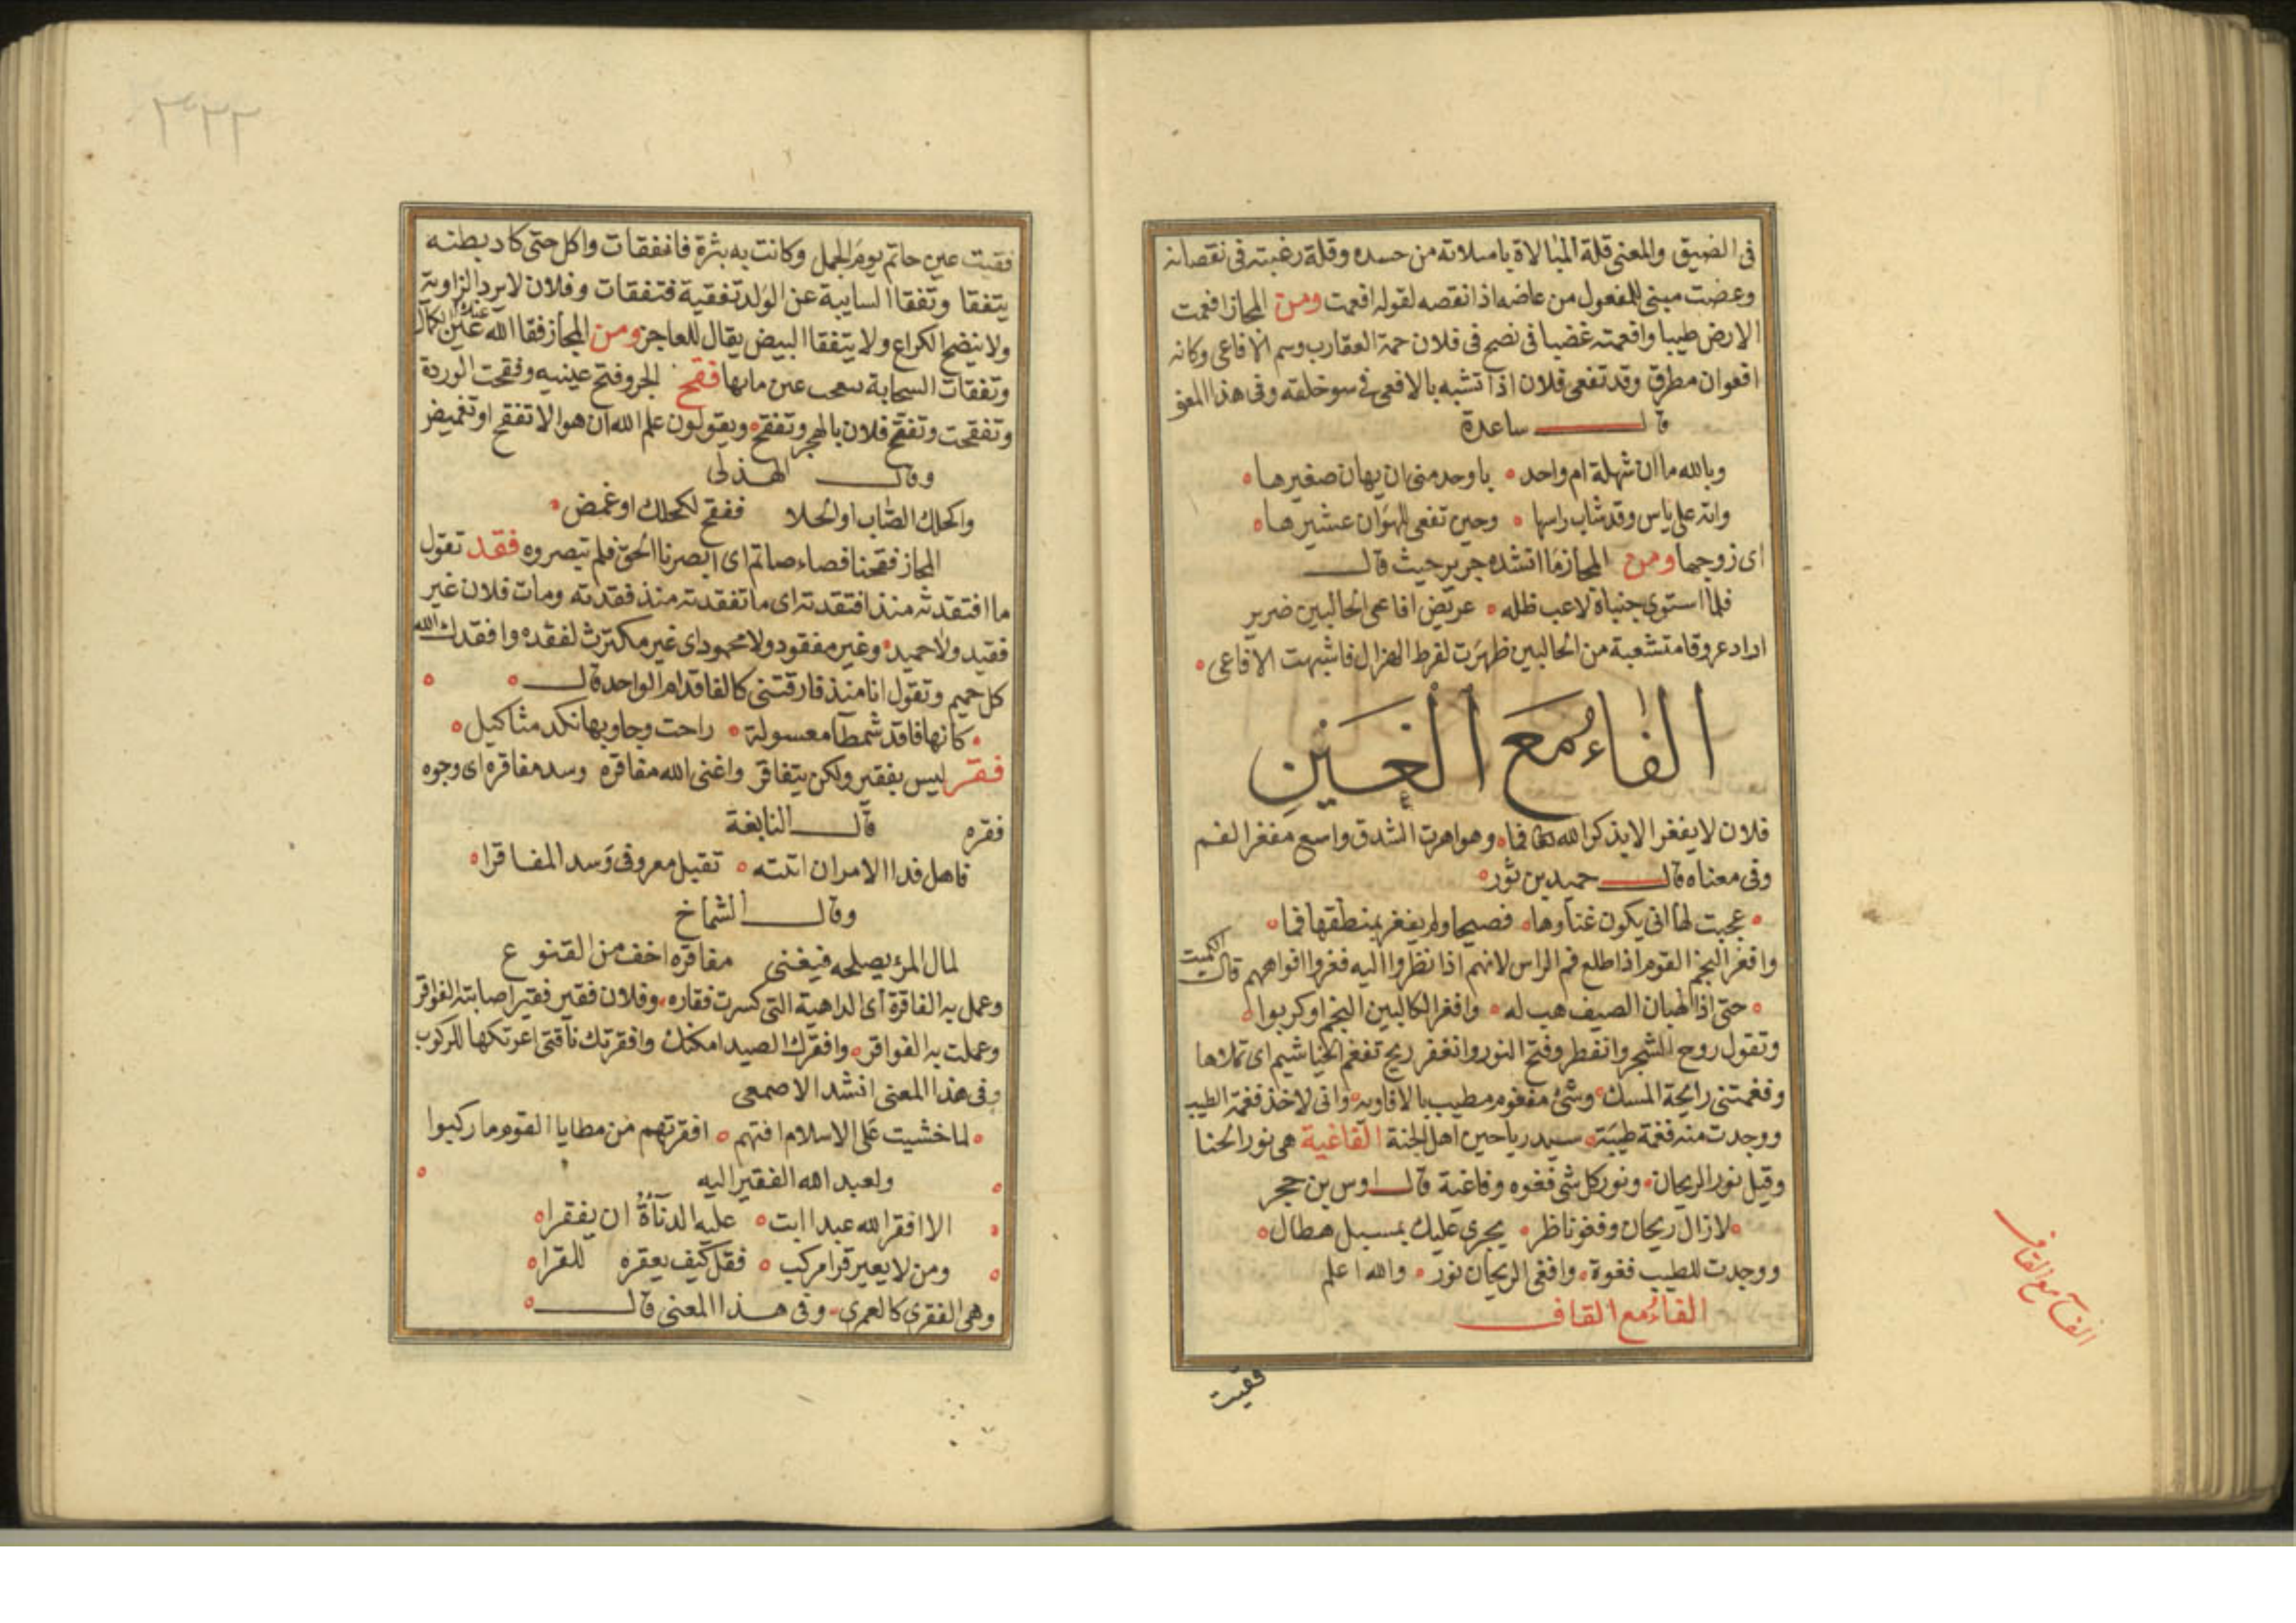 في الضيق والمعنى قلة المبالاة بامسلاته من حسده وقلة رغبته في نقصانه
وعضت مبنى للمفعول من عاضه اذا نقصه لقوله افعمت ومن المجاز افعمت
الارض طيبا وافعمته غضبا في نصح في فلان حمة العقارب وسم الافاعي وكانه
افعوان مطرق وقد تفعى فلان اذا تشبه بالافعى في سو خلقه وفي هذا المعنى
قال ساعدة
وبالله ما ان شهلة ام واحد • باوجد مني ان يهان صغيرها •
وانه على ياس وقد شاب راسها • وحين تفعى للهوان عشيرها •
اى زوجها ومن المجاز ما انشده جرير حيث قال
فلما استوى جنباه لاعب ظله • عريض افاعي الحالبين ضرير
اراد عروقا متشعبة من الحالبين ظهرت لفرط الهزال فاشبهت الافاعي •
الفاء مع الغين
فلان لا يفغر الا بذكر الله تعالى فما • وهو اهرت الشدق واسع مفغر الفم
وفي معناه قال حميد بن ثور •
• عجبت لها انى يكون غناوها • فصيحا ولم يفغر بمنطقها فما •
وافغر النجم القوم اذا طلع قم الراس لانهم اذا نظروا اليه فغروا افواههم قال الكميت
• حتى اذا لهبان الصيف هب له • وافغر الكالبين النجم او كربوا •
وتقول روح الشجر وانفطر وفتح النور وانفغر ريح تفغم الخياشيم اى تملاها
وفغمتني رايحة المسك • وشئ مفغوم مطيب بالافاويه • واني لاخذ فغمة الطيب
ووجدت منه فغمة طيبة • سيد رياحين اهل الجنة الفاغية هي نور الحنا
وقيل نور الريحان • ونور كل شي فغوه وفاغية قال اوس بن حجر
• لا زال ريحان وفغو ناظر • يجرى عليك بمسبل هطال •
ووجدت للطيب فغوة • وافغى الريحان نور • والله اعلم
الفاء مع القاف
الفاء مع القاف
فقيت
٣٢٢
فقيت عين حاتم يوم الجمل وكانت به بثرة فانفقات واكل حتى كاد بطنه
يتفقا وتفقا السابية عن الولد تفقية فتفقات وفلان لا يرد الزاوية
ولا ينضج الكراع ولا يتفقا البيض يقال للعاجز ومن المجاز فقا الله عنك عين الكمال
وتفقات السحابة عن مايها فقح الجرو فتح عينيه وفقحت الوردة
وتفقحت وتفقح فلان بالهجر وتفقح • ويقولون علم الله ان هو الا تفقح او تغميض
وقال الهذلي
واكحلك الصاب او الجلا ففقح لكحلك او غمض •
المجاز فقحنا فصاصاتم اى ابصرنا الحق فلم تبصروه فقد تقول
ما افتقدته منذ افتقدته اى ما تفقدته منذ فقدته ومات فلان غير
فقيد ولا حميد • وغير مفقود ولا محمود اى غير مكترث لفقده وافقدك الله
كل حميم وتقول انا منذ فارقتني كالفاقد ام الواحد قال
• كانها فاقد شمطا معسولة • راحت وجاوبها نكد مثاكيل •
فقر ليس بفقير ولكن يتفاقر واغنى الله مفاقره وسد مفاقره اى وجوه
فقره قال النابغة
فاهل فدا الامر ان اتته • تقبل معروفي وسد المفاقرا •
وقال الشماخ
لمال المرء يصلحه فيغنى مفاقره اخف من القنوع
وعمل به الفاقرة اى الداهية التي كسرت فقاره • وفلان فقير فقير اصابته الفواقر
وعملت به الفواقر • وافقرك الصيد امكنك وافقرتك ناقتي اعرتكها للركوب
وفي هذا المعنى انشد الاصمعي
• لما خشيت على الاسلام افتهم • افقرتهم من مطايا القوم ما ركبوا
ولعبد الله الفقير اليه
الا افقر الله عبدا ابت • عليه الدناءة ان يفقرا •
ومن لا يعير قرا مركب • فقل كيف يعقره للقرا •
وهي الفقرى كالعمرى • وفي هذا المعنى قال